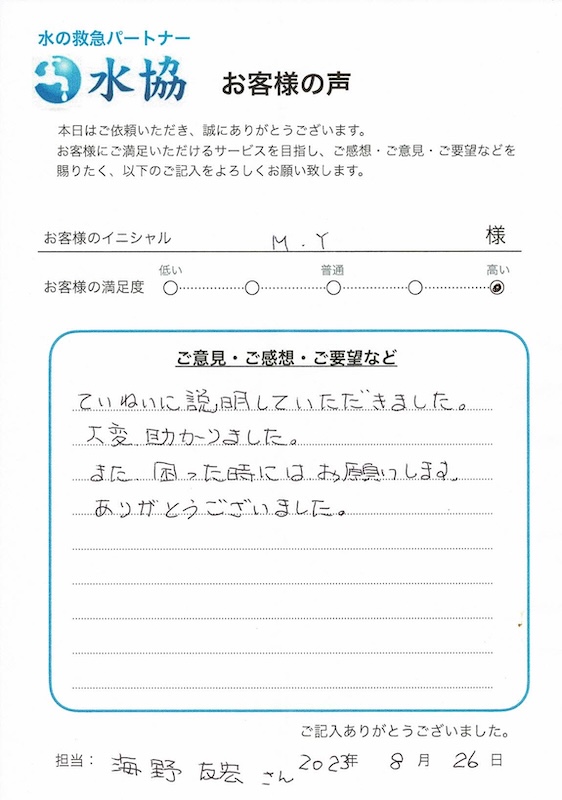 水の救急パートナー
水協 お客様の声
本日はご依頼いただき、誠にありがとうございます。
お客様にご満足いただけるサービスを目指し、ご感想・ご意見・ご要望などを
賜りたく、以下のご記入をよろしくお願い致します。
お客様のイニシャル M.Y 様
低い 普通 高い
お客様の満足度
ご意見・ご感想・ご要望など
ていねいに説明していただきました。
大変助かりました。
また、困った時にはお願いします。
ありがとうございました。
ご記入ありがとうございました。
担当： 海野友宏さん 2023年 8月 26日